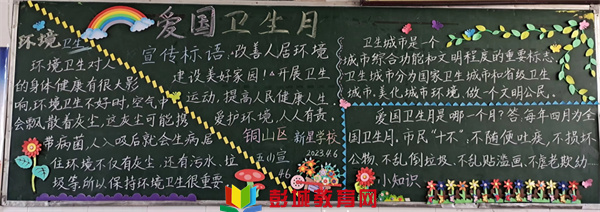 爱国卫生月
环境卫生
环境卫生对人
的身体健康有很大影
响,环境卫生不好时,空气中
会飘散着灰尘,这灰尘可能携
带病菌,人入吸后就会生病居
住环境不仅有灰尘,还有污水、垃
圾等,所以保持环境卫生很重要
宣传标语,改善人居环境
建设美好家园!开展卫生
运动,提高人民健康人生
爱护环境,人人有责.
铜山区新星学校
2023.4.6
五山宣
4.6
卫生城市是一个
城市综合功能和文明程度的重要标志
卫生城市分为国家卫生城市和省级卫生
城市,美化城市环境,做一个文明公民。
爱国卫生月是哪一个月?答,每年四月为全
国卫生月,市民"十不",不随便吐痰,不损坏
公物,不乱倒垃圾,不乱贴漫画,不虐老欺幼……
小知识
彭城教育网